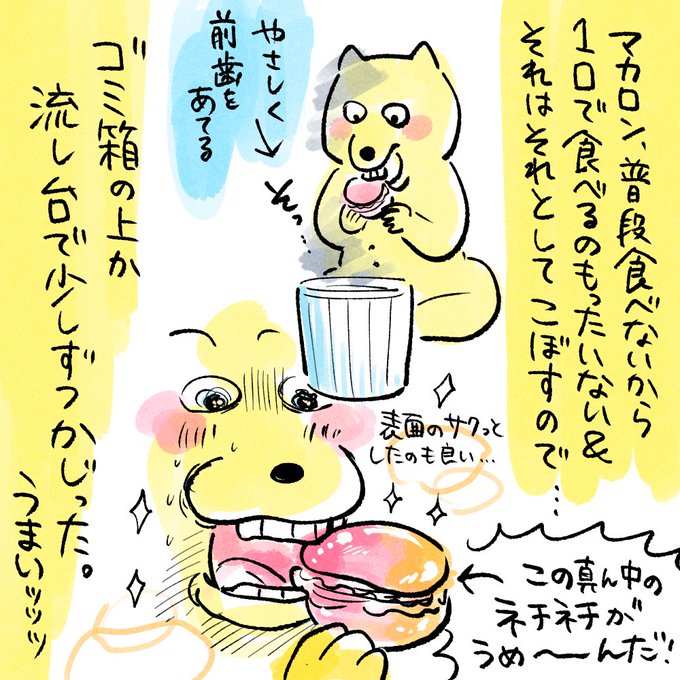 マカロン、普段食べないから
1口で食べるのもったいない&
それはそれとしてこぼすので…
やさしく
前歯を
あてる
そっ…
表面のサクっと
したのも良い…
この真ん中の
ネチネチが
うめ〜〜んだ!
ゴミ箱の上か
流し台で少しずつかじった。
うまいッッッ